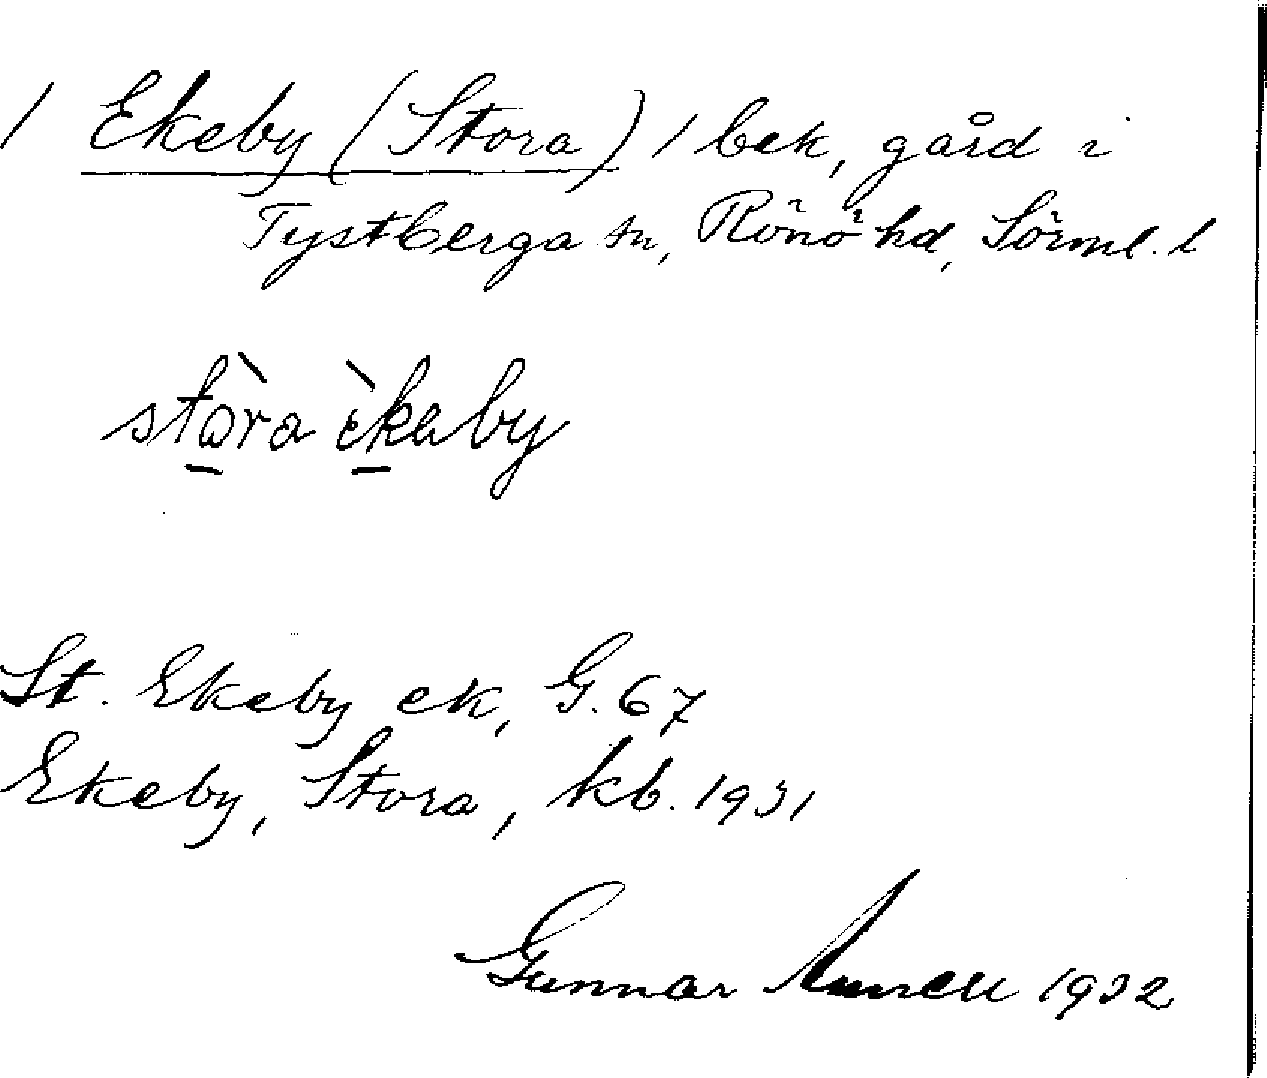 / Ekeby (Stora) / bek, gård i
Tystberga sn, Rönö hd, Sörml. l
stò̱ra è̱keby
St. Ekeby ek, G. 67
Ekeby, Stora, kb. 1931
Gunnar 1932